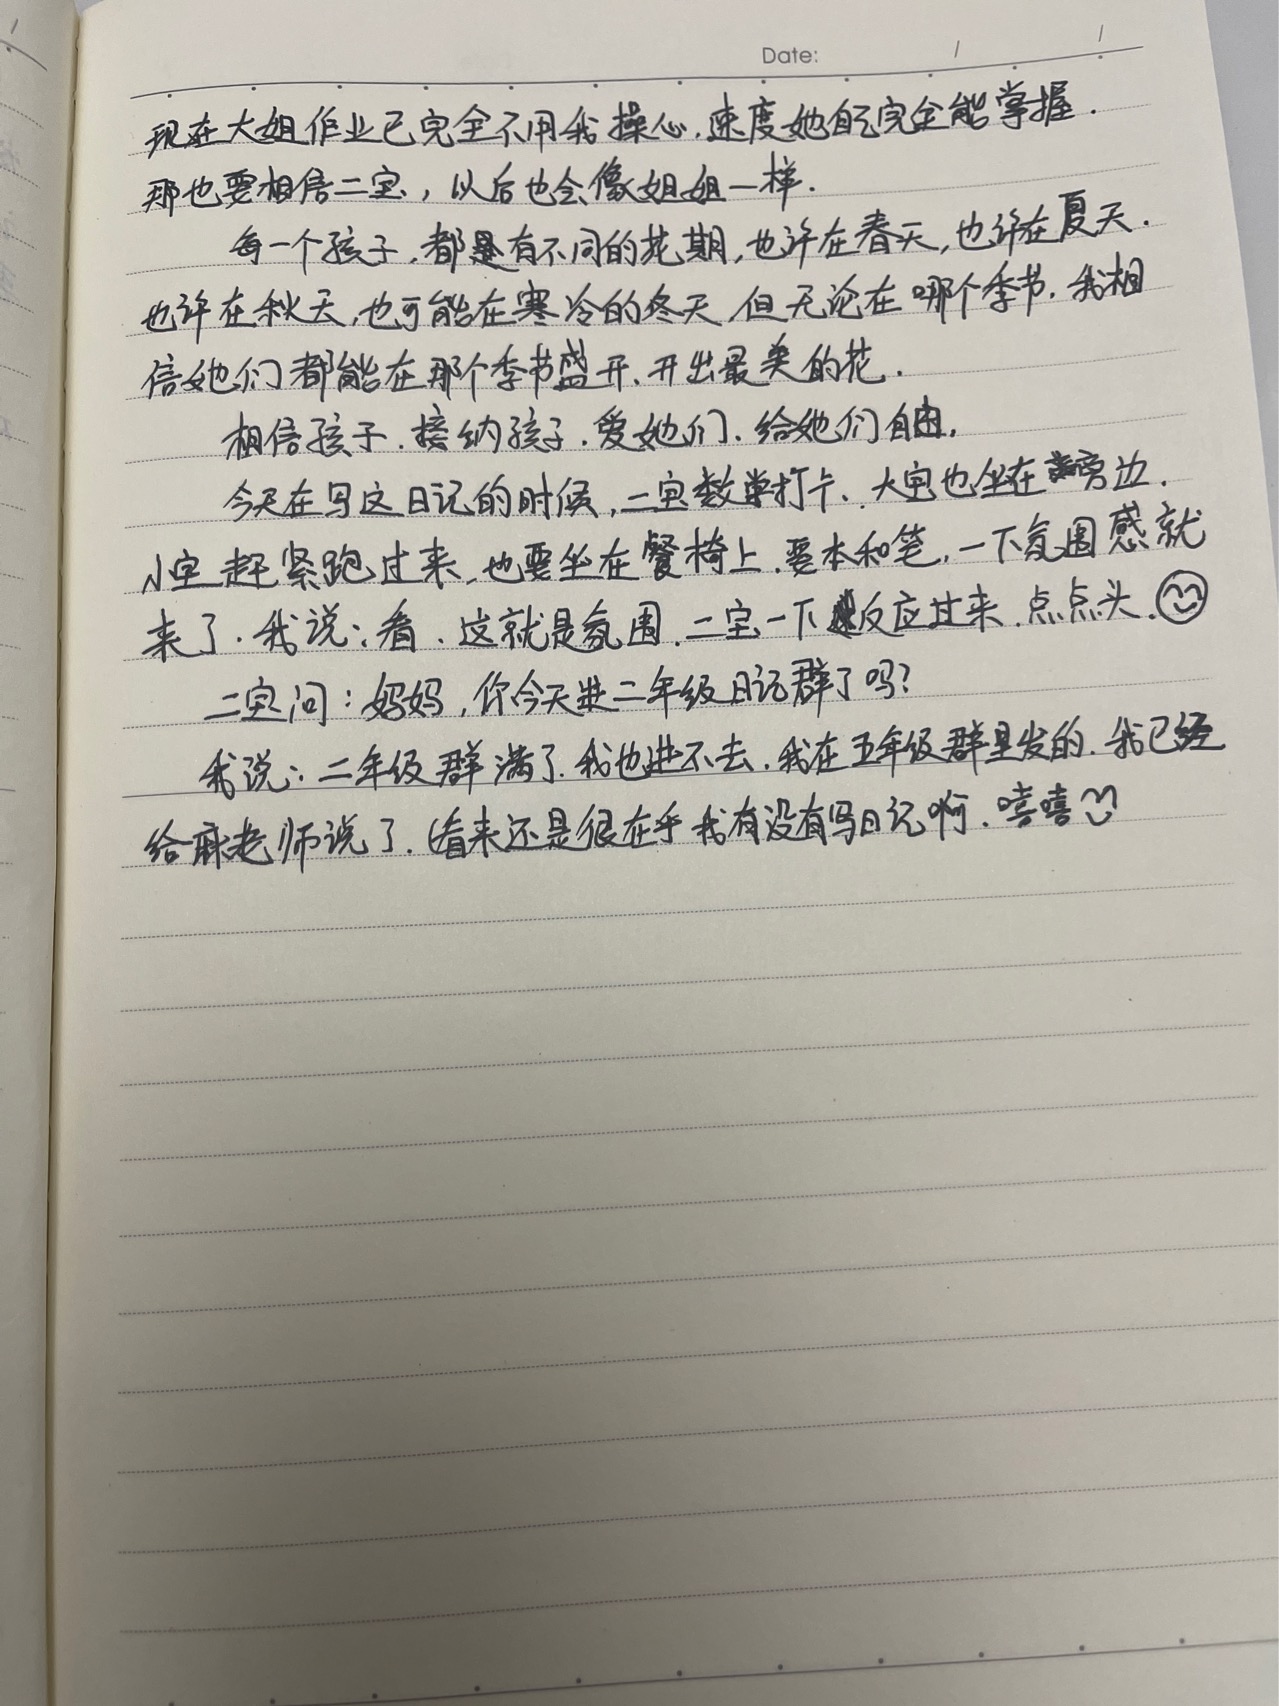 Date: / /
现在大姐作业已完全不用我操心.速度她自己完全能掌握.
那也要相信二宝,以后也会像姐姐一样.
每一个孩子,都是有不同的花期,也许在春天,也许在夏天.
也许在秋天,也可能在寒冷的冬天,但无论在哪个季节.我相
信她们都能在那个季节盛开、开出最美的花.
相信孩子.接纳孩子.爱她们、给她们自由.
今天在写这日记的时候,二宝数学打卡、大宝也坐在旁边.
小宝赶紧跑过来,也要坐在餐椅上.要本和笔,一下氛围感就
来了.我说:看.这就是氛围.二宝一下反应过来.点点头.
二宝问:妈妈,你今天进二年级日记群了吗?
我说:二年级群满了.我也进不去.我在五年级群里发的.我已经
给麻老师说了.(看来还是很在乎我有没有写日记啊.嘻嘻